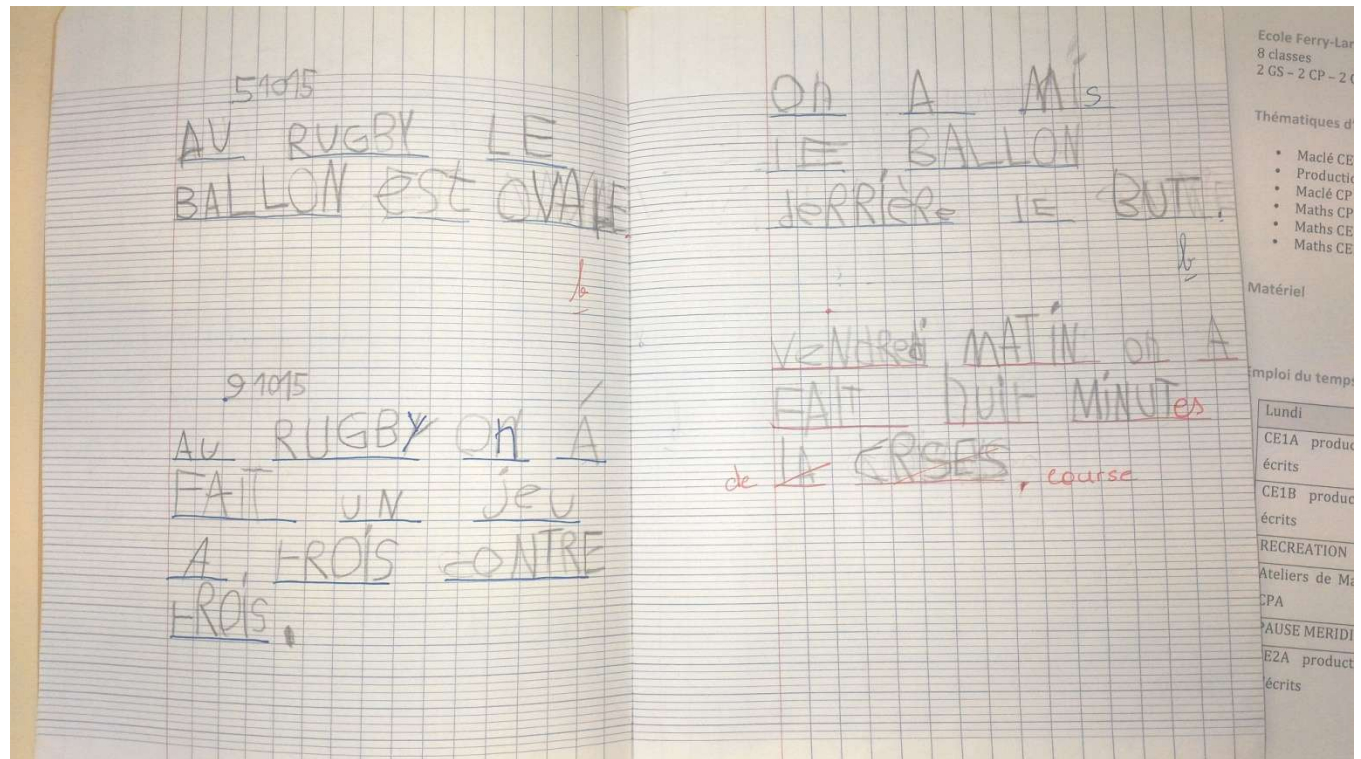 51015
AU RUGBY LE
BALLON est OVALE.
b
91015
AU RUGBY On À
FAIT UN jeu
A tROIS cONTRE
tROIS.
On A MIs
lE BALLON
deRRIèRe lE BUT.
b
VeNdRedi MATIN on A
FAIT huit MINUTes
de LA CRSES, course
Ecole Ferry-Lar
8 classes
2 GS – 2 CP – 2 C
Thématiques d'
• Maclé CE
• Productio
• Maclé CP
• Maths CP
• Maths CE
• Maths CE
Matériel
Emploi du temps
Lundi
CE1A produc
écrits
CE1B produc
écrits
RECREATION
Ateliers de Ma
CPA
PAUSE MERIDI
CE2A product
d'écrits